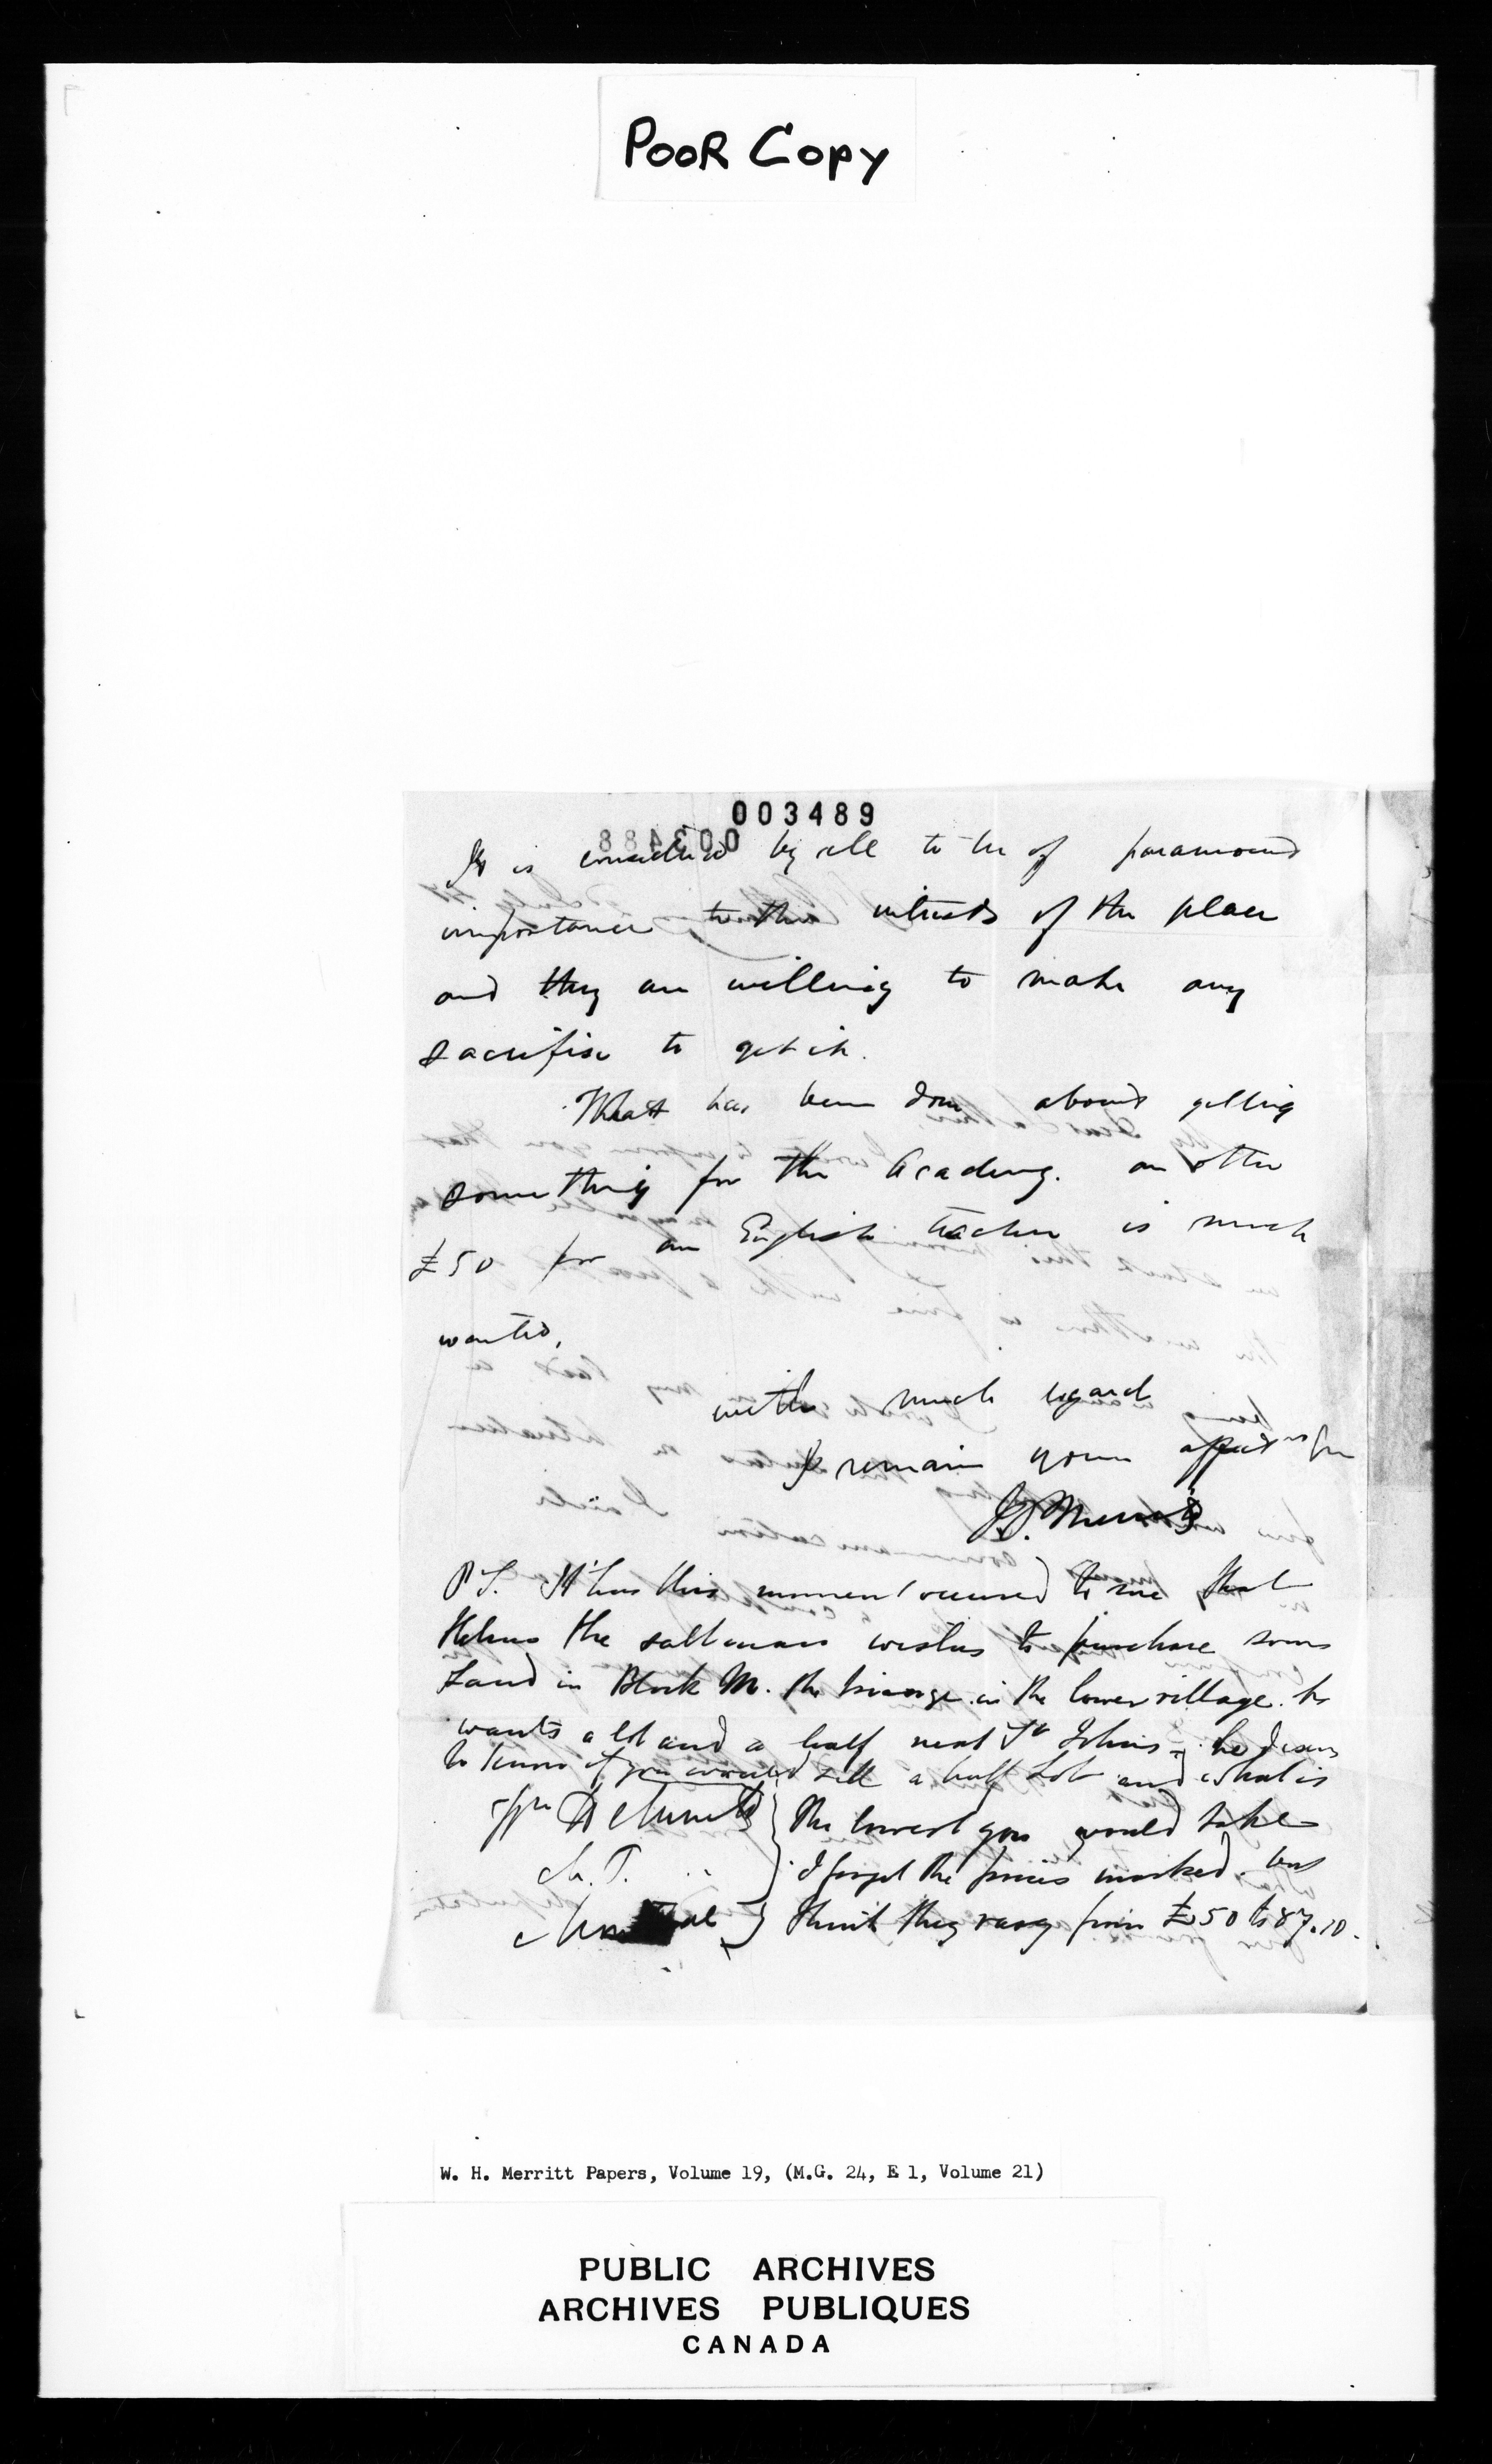 POOR COPY
003489
003488
It is considered by all to be of paramount
importance to the interests of the place
and they are willing to make any
sacrifise to get it.
What has been done about getting
something for the Academy. an other
£50 for an English teacher is much
wanted,
with much regard
I remain your affect
P.S. It has this moment occured to me that
the wishes to purchase some
Land in Block M. the triangle in the lower village. he
wants a lot and a half next St Johns - he desires
to know if you would sell a half Lot and what is
Wm H Merritt } the lowest you would take
M.P. } I forget the prices marked. but
Montreal } think they vary from £50 to 87.10.
W. H. Merritt Papers, Volume 19, (M.G. 24, E 1, Volume 21)
PUBLIC ARCHIVES
ARCHIVES PUBLIQUES
CANADA